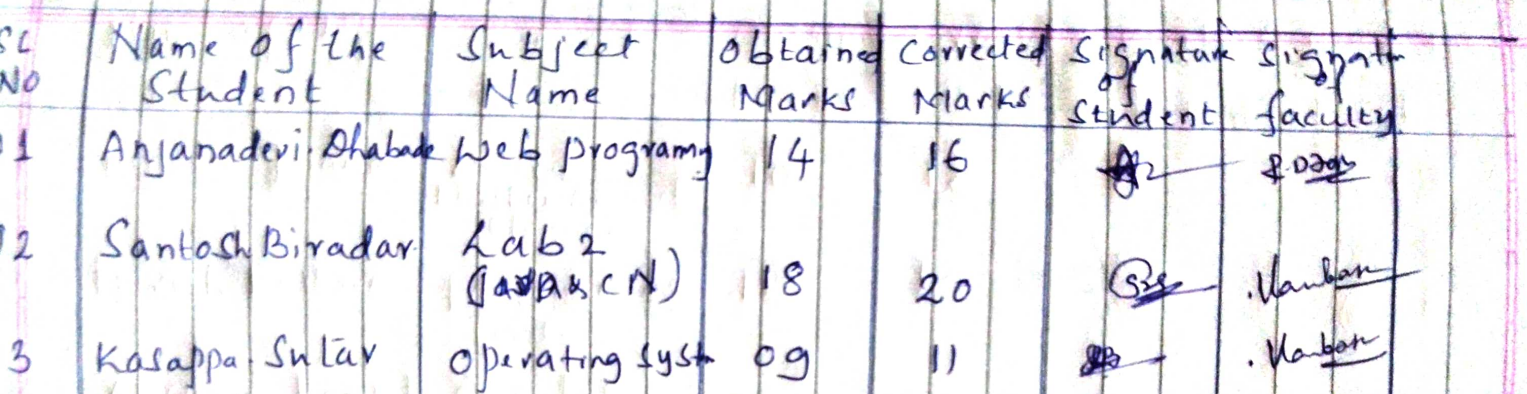 SL NO Name of the Student Subject Name Obtained Marks Corrected Marks Signature of Student Signatr faculty
1 Anjanadevi Dhabade Web programg 14 16
2 Santosh Biradar Lab 2 18 20
CN)
3 Kasappa Sutar Operating syst 09 11